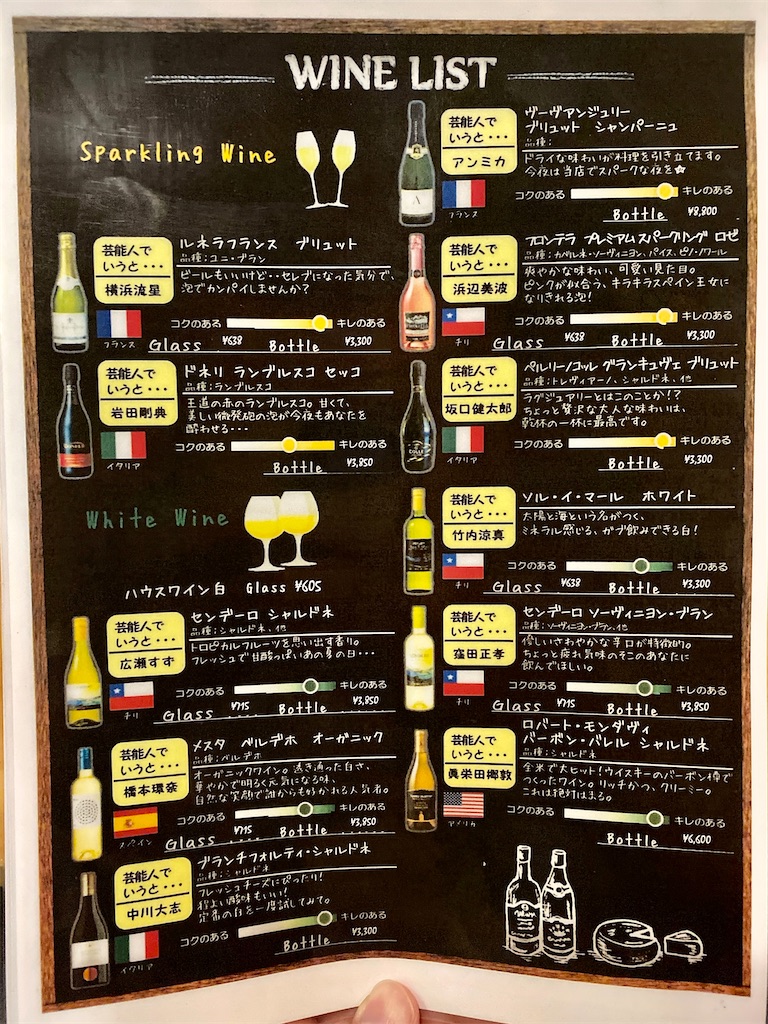 WINE LIST
Sparkling Wine
芸能人で
いうと・・・
アンミカ
ヴーヴアンジュリー
ブリュット シャンパーニュ
品種：
ドライな味わいが料理を引き立てます。
今夜は当店でスパークな夜を☆
フランス
コクのある キレのある
Bottle ¥8,800
芸能人で
いうと・・・
横浜流星
ルネラフランス ブリュット
品種：ユニ・ブラン
ビールもいいけど・・セレブになった気分で、
泡でカンパイしませんか？
フランス
コクのある キレのある
Glass ¥638 Bottle ¥3,300
芸能人で
いうと・・・
浜辺美波
フロンテラ プレミアムスパークリング ロゼ
品種：カベルネ・ソーヴィニヨン、パイス、ピノ・ノワール
爽やかな味わい、可愛い見た目。
ピンクが似合う、キラキラスペイン王女に
なりきれる泡！
チリ
コクのある キレのある
Glass ¥638 Bottle ¥3,300
芸能人で
いうと・・・
岩田剛典
ドネリ ランブルスコ セッコ
品種：ランブルスコ
王道の赤のランブルスコ。甘くて、
美しい微発砲の泡が今夜もあなたを
酔わせる・・・
イタリア
コクのある キレのある
Bottle ¥3,850
芸能人で
いうと・・・
坂口健太郎
ペルリーノコッル グランキュヴェ ブリュット
品種：トレヴィアーノ、シャルドネ、他
ラグジュアリーとはこのことか！？
ちょっと贅沢な大人な味わいは、
乾杯の一杯に最高です。
イタリア
コクのある キレのある
Bottle ¥3,300
White Wine
ハウスワイン白 Glass ¥605
芸能人で
いうと・・・
竹内涼真
ソル・イ・マール ホワイト
太陽と海という名がつく、
ミネラル感じる、ガブ飲みできる白！
チリ
コクのある キレのある
Glass ¥638 Bottle ¥3,300
芸能人で
いうと・・・
広瀬すず
センデーロ シャルドネ
品種：シャルドネ、他
トロピカルフルーツを思い出す香り。
フレッシュで甘酸っぱいあの夏の日・・・
チリ
コクのある キレのある
Glass ¥715 Bottle ¥3,850
芸能人で
いうと・・・
窪田正孝
センデーロ ソーヴィニヨン・ブラン
品種：ソーヴィニヨン・ブラン、他
優しいさわやかな辛口が特徴的。
ちょっと疲れ気味のそこのあなたに
飲んでほしい。
チリ
コクのある キレのある
Glass ¥715 Bottle ¥3,850
芸能人で
いうと・・・
橋本環奈
メスタ ベルデホ オーガニック
品種：ベルデホ
オーガニックワイン。透き通った白さ、
華やかで明るく元気になる味、
自然な笑顔で誰からも好かれる人気者。
スペイン
コクのある キレのある
Glass ¥715 Bottle ¥3,850
芸能人で
いうと・・・
眞栄田郷敦
ロバート・モンダヴィ
バーボン・バレル シャルドネ
品種：シャルドネ
全米で大ヒット！ウイスキーのバーボン樽で
つくったワイン。リッチかつ、クリーミー。
これは絶対はまる。
アメリカ
コクのある キレのある
Bottle ¥6,600
芸能人で
いうと・・・
中川大志
ブランチフォルティ・シャルドネ
品種：シャルドネ
フレッシュチーズにぴったり！
程よい酸味もいい！
定番の白を一度試してみて。
イタリア
コクのある キレのある
Bottle ¥3,300